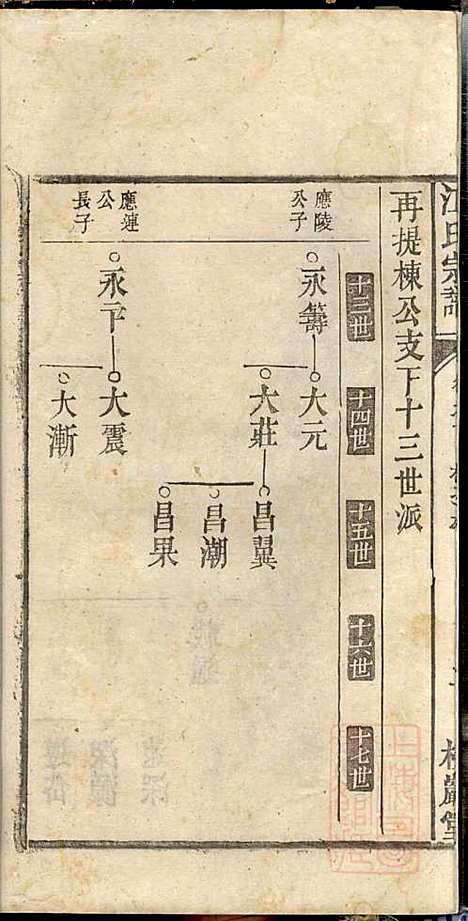 江氏宗譜
再提棟公支下十三世派
十三世
十四世
十五世
十六世
十七世
應陵
公子
永籌
大元
大莊
昌翼
昌潮
昌果
應連
公
長子
永平
大震
大漸